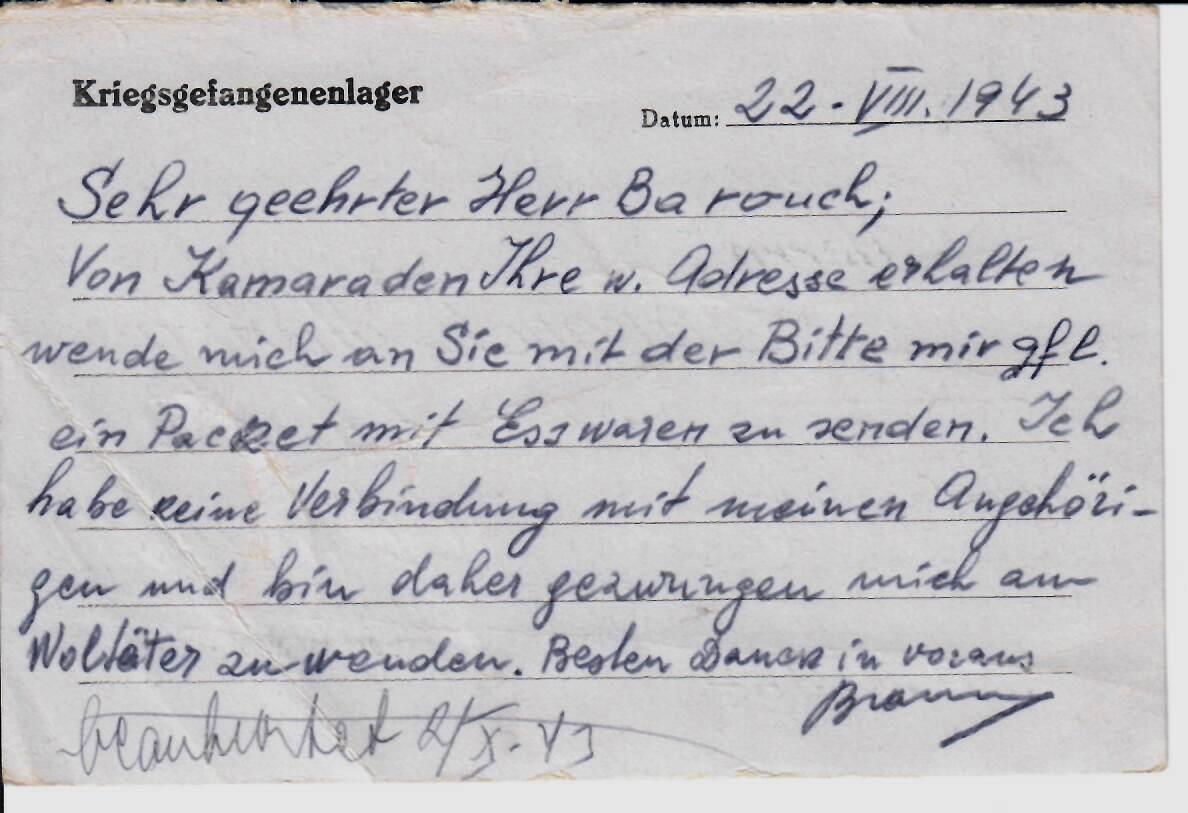 Kriegsgefangenenlager
Datum: 22-VIII.1943
Sehr geehrter Herr Barouch;
Von Kamaraden Ihre w. Adresse erhalten
wende mich an Sie mit der Bitte mir gfl.
ein Packet mit Esswaren zu senden. Ich
habe keine Verbindung mit meinen Angehöri-
gen und bin daher gezwungen mich an
Woltäter zu wenden. Besten Danck in voraus
beantwortet 2/X.43